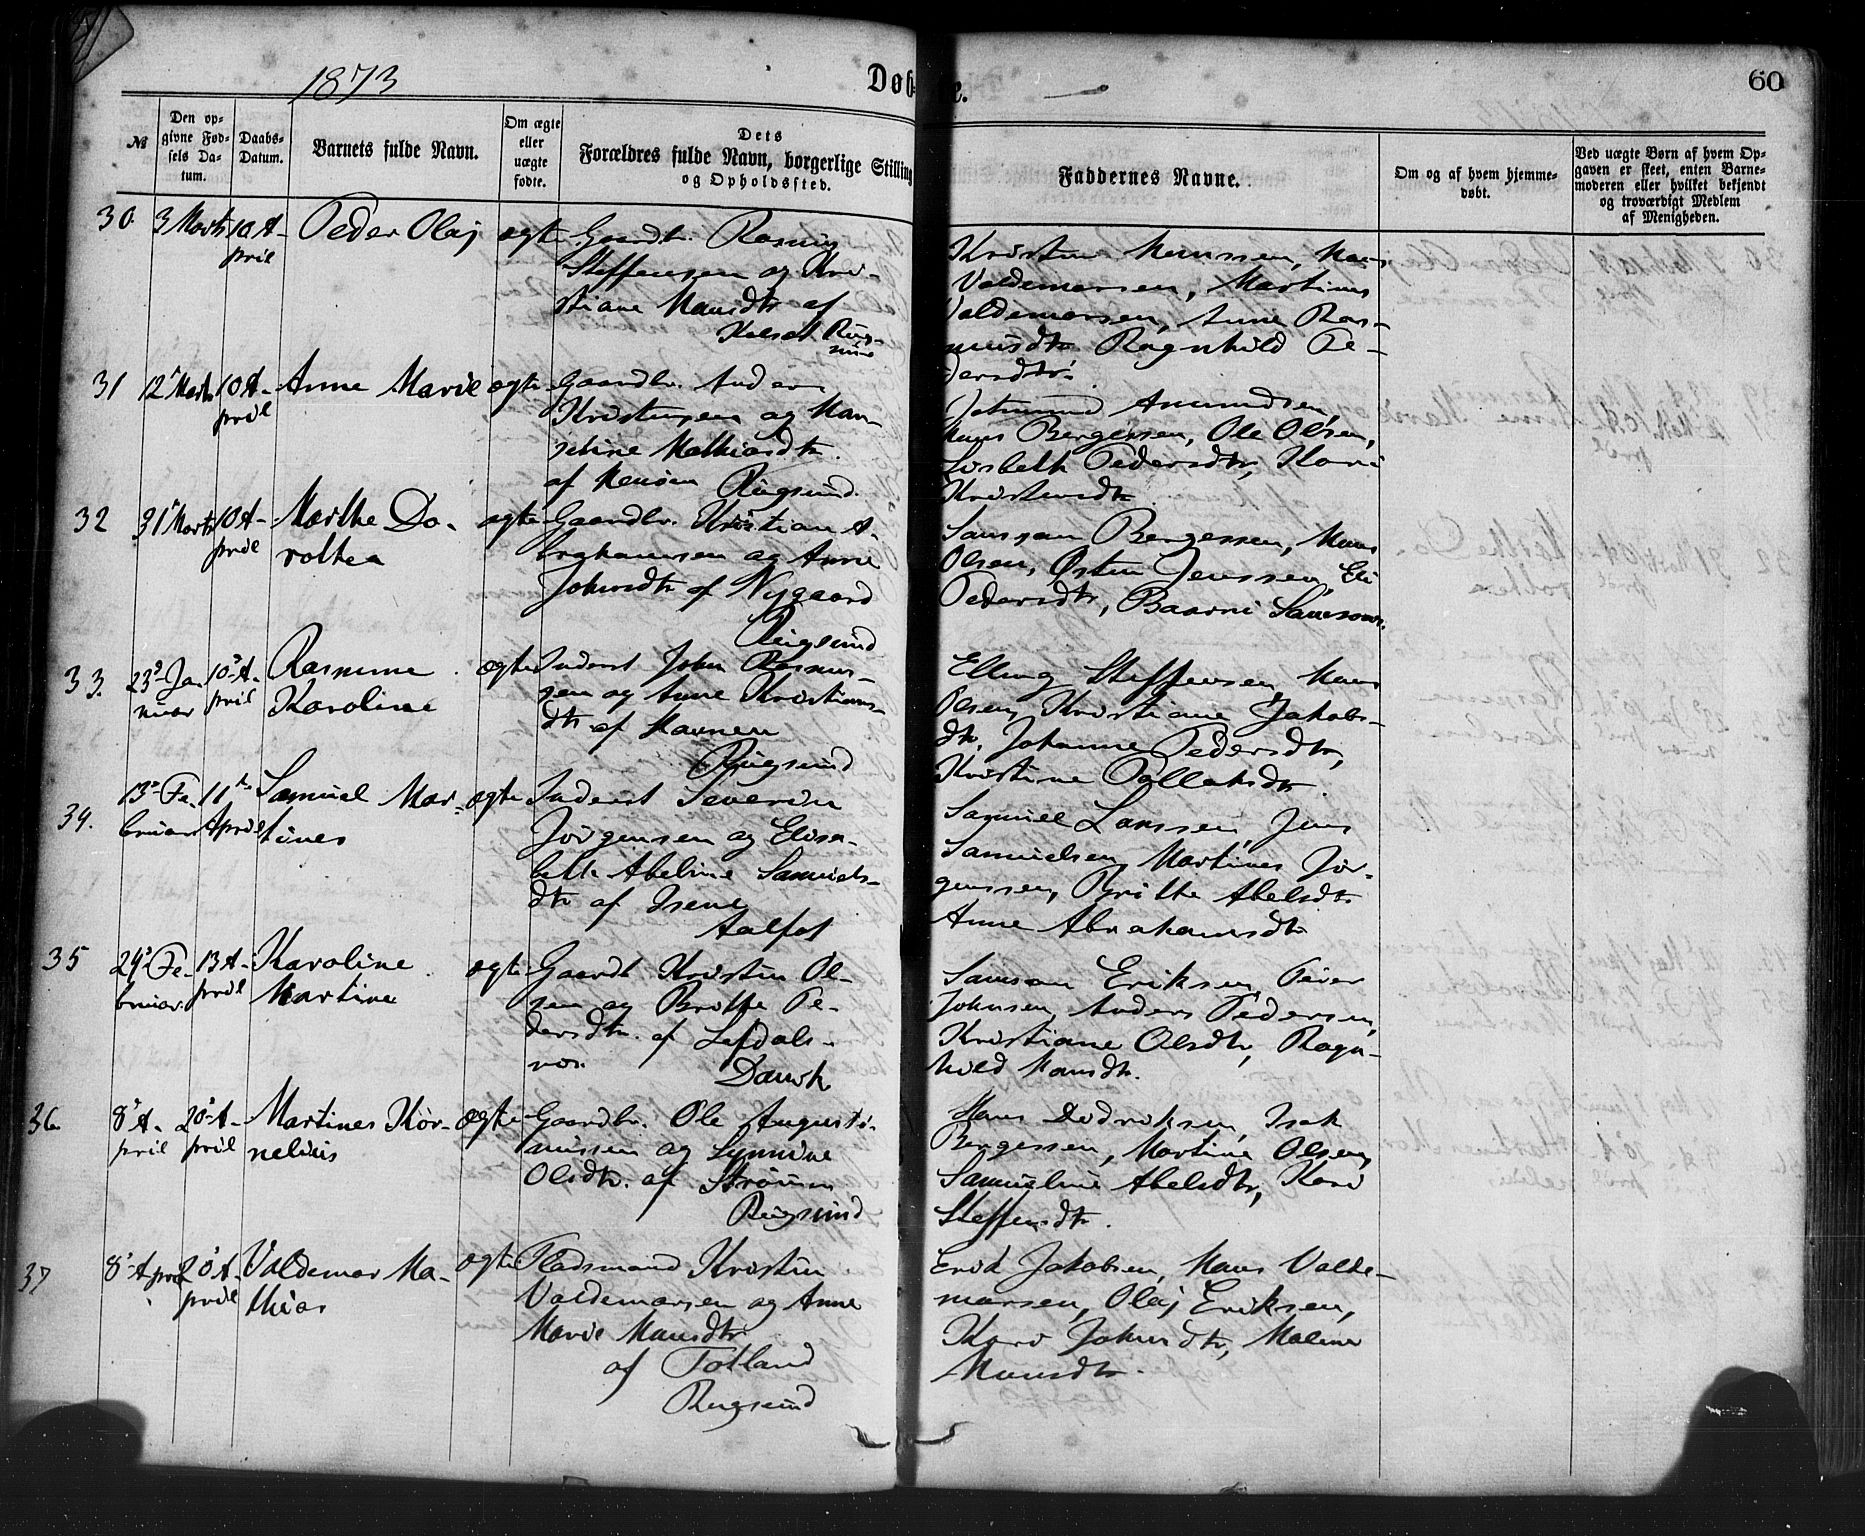 1873
Døb
e.
60
№
Den op-
givne Fød-
sels Da-
tum.
Daabs-
Datum.
Barnets fulde Navn.
Om ægte
eller
uægte
fødte.
Dets
Forældres fulde Navn, borgerlige Stilling
og Opholdssted.
Faddernes Navne.
Om og af hvem hjemme-
døbt.
Ved uægte Børn af hvem Op-
gaven er skeet, enten Barne-
moderen eller hvilket bekjendt
og troværdigt Medlem
af Menigheden.
30
3 Marts
10 A-
pril
Peder Olaj
ægte
Gaardbr. Rasmus
Steffensen og Kri-
stiane Hansdtr af
Kolset Rug-
sund
Kristen Monssen, Hans
Valdemarsen, Martinus
Valdemarsen, Anne Ras-
musdtr Ragnhild Pe-
dersdtr.
31
12 Marts
10 A-
pril
Anne Marie
ægte
Gaardbr. Anders
Kristensen og Han-
seline Mathiasdtr.
af Rugsund
Amundsen,
Hans Bergessen, Ole Olsen,
Lisbeth Pedersdtr, Kari
Kristensdtr
32
31 Marts
10 A-
pril
Marthe Do-
rothea
ægte
Gaardbr. Kristian A-
brahamsen og Anne
Johnsdtr af Nygaard
Rugsund
Samson Bergessen, Hans
Olsen, Østen Jenssen, Eli
Pedersdtr, Baarni Samsons.
33.
23 Ja-
nuar
10 A-
pril
Rasmine
Karoline
ægte
Inderst John Rasmus-
sen og Anne Kristians-
dtr af Havnen
Rugsund
Elling Steffensen, Hans
Olsen, Kristiane Jakobs-
dtr, Johanne Pedersdtr,
Kristine Pallesdtr.
34.
13 Fe-
bruar
11te
April
Samuel Mar-
tines
ægte
Inderst Severin
Jørgensen og Elisa-
beth Abeline Samuels-
dtr af Isene
Aalfot
Samuel Larssen, Jens
Samuelsen, Martines Jør-
genssen, Brithe Abelsdtr
Anne Abrahamsdtr
35
24 Fe-
bruar
13 A-
pril
Karoline
Martine
ægte
Gaardb Kristen Ol-
sen og Brithe Pe-
dersdtr. af Lefdals-
nes.
Davik
Samson Eriksen, Peder
Johnsen, Anders Pedersen,
Kristiane Olsdtr, Ragn-
hild Hansdtr.
36
8 A-
pril
20 A-
pril
Martines Kor-
nelius
Ægte
Gaardbr. Ole Augusti-
nussen og Synnine
Olsdtr. af Strømm
Rugsund
Hans Didriksen, Isak
Bergessen, Martine Olsen,
Samueline Abelsdtr, Kari
Steffensdtr.
37
8 April
20 A-
pril
Valdemar Ma-
thias
ægte
Pladsmand Kristen
Valdemarsen og Anne
Marie Hansdtr
af Totland
Rugsund
Erik Jakobsen, Hans Valde-
marsen, Olaj Eriksen,
Kari Johnsdtr, Malene
Hansdtr.